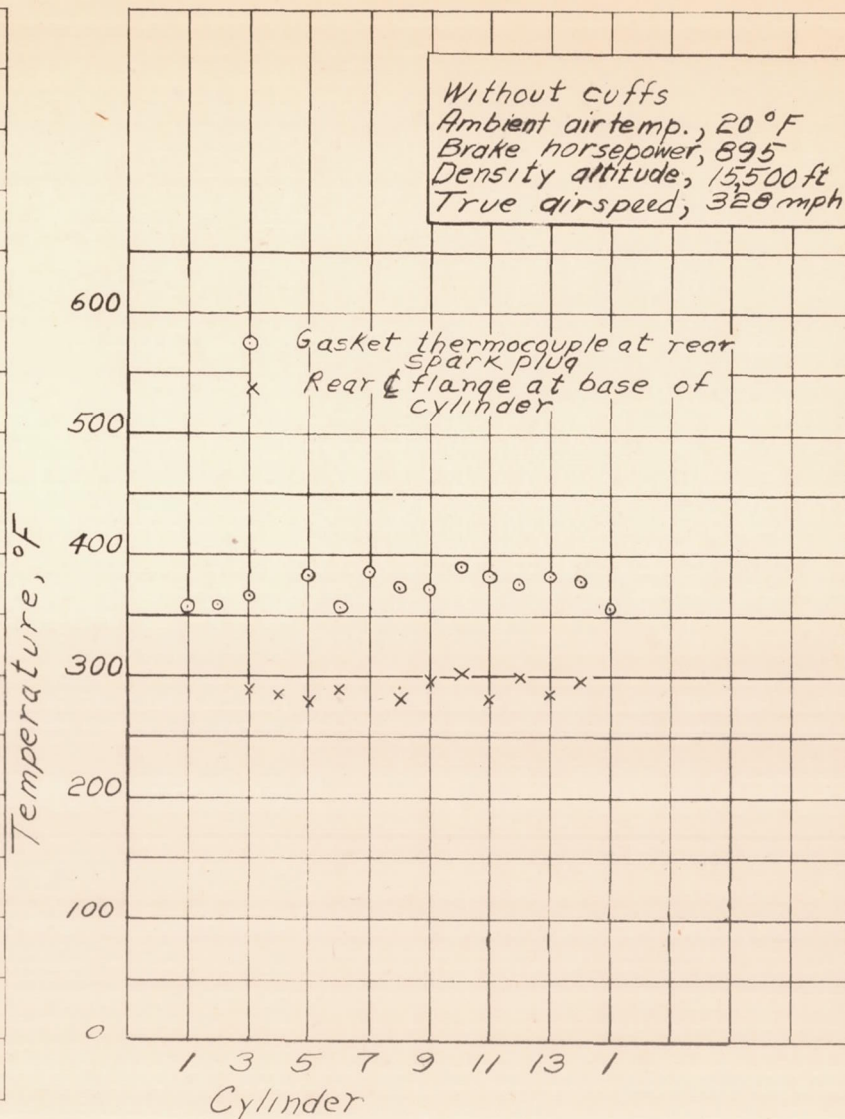 Without cuffs
Ambient air temp., 20°F
Brake horsepower, 895
Density altitude, 15,500 ft
True airspeed, 328 mph
600
Gasket thermocouple at rear
spark plug
Rear ℄ flange at base of
cylinder
500
400
300
200
100
0
Temperature, °F
1 3 5 7 9 11 13 1
Cylinder